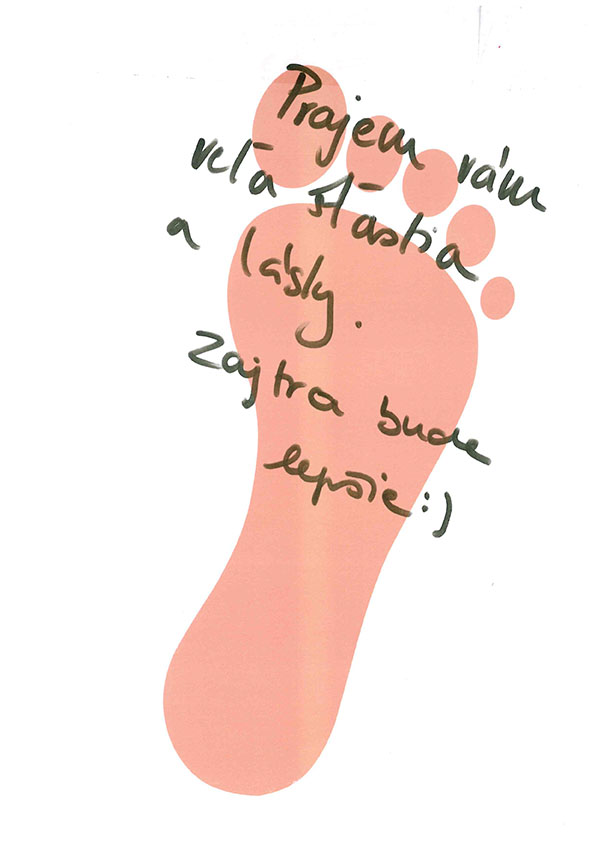 Prajem vám
veľa šťastia
a lásky.
Zajtra bude
lepšie :)